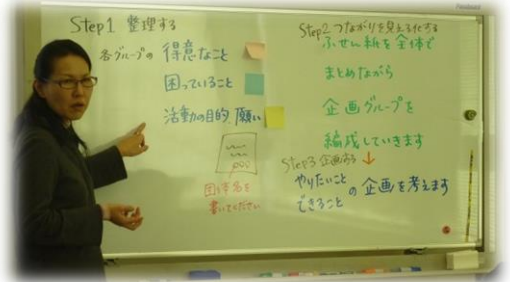 Step1 整理する
各グループの 得意なこと
困っていること
活動の目的、願い
団体名を
書いてください
Step2 つながりを見える化する
ふせん紙を全体で
まとめながら
企画グループを
編成していきます
Step3 企画する
やりたいこと
できること
の企画を考えます